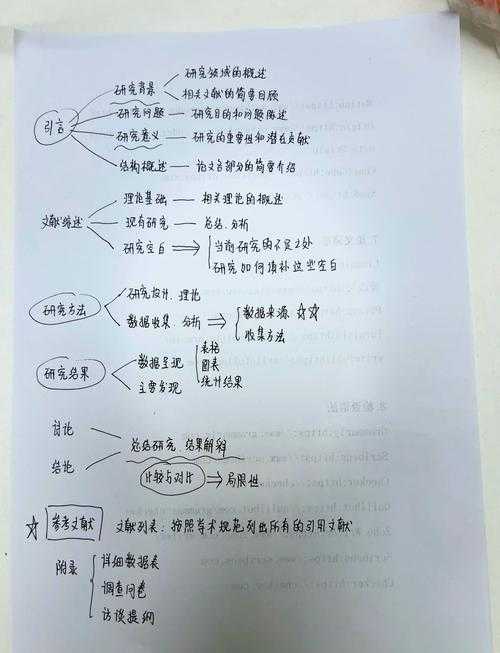 研究领域的概述
研究背景
相关文献的简要回顾
引言
研究问题 研究目的和问题陈述
研究意义 研究的重要性和潜在贡献
结构概述 论文各部分的简要介绍
理论基础 相关理论的概述
文献综述
现有研究 总结、分析
研究空白 当前研究的不足之处
研究如何填补这些空白
研究设计、理论
研究方法
数据收集、分析 数据来源 ☆☆
收集方法
表格
数据呈现
图表
研究结果
主要发现 统计结果
讨论
总结研究、结果解释
结论
比较与对比 局限性
☆ 参考文献 文献列表：按照学术规范列出所有的引用文献
详细数据表
附录
调查问卷
访谈提纲